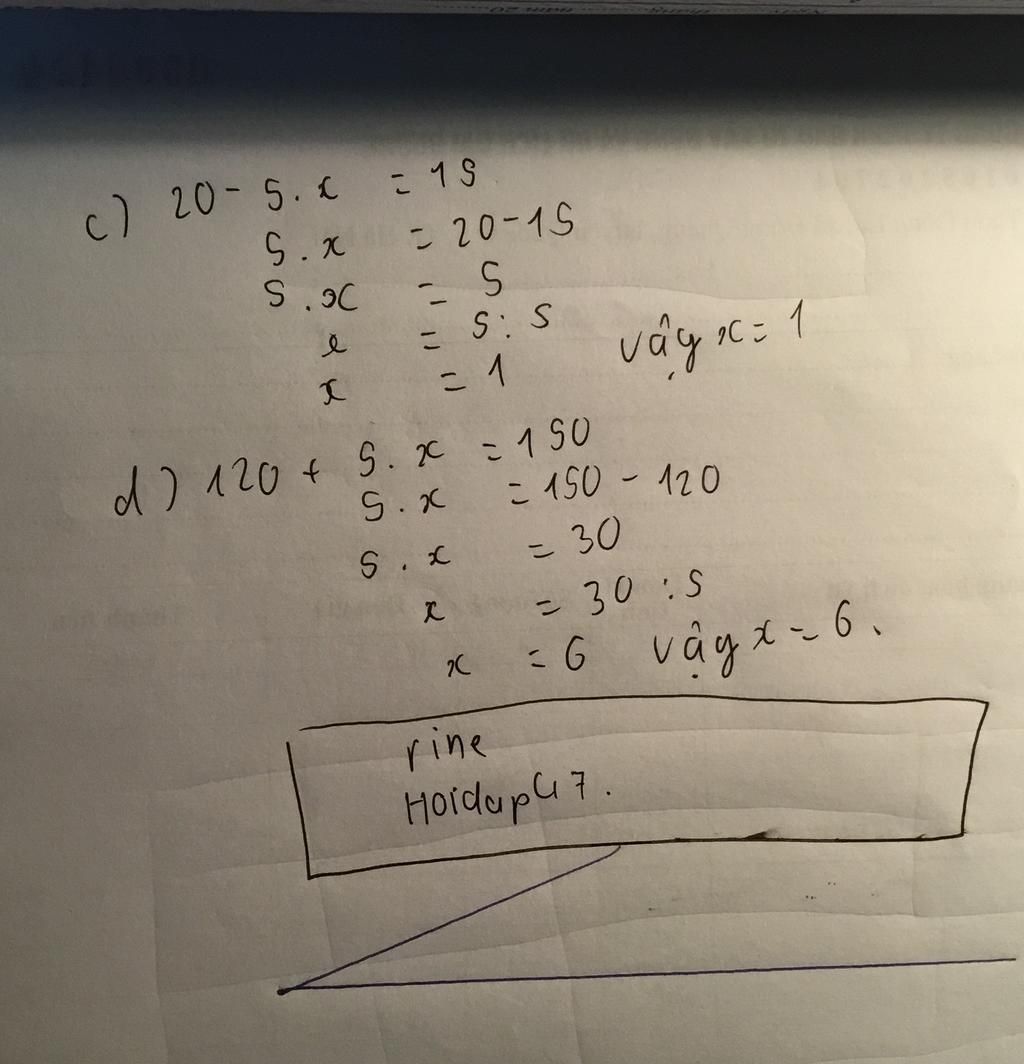 c) 20 - 5.x = 15
5.x = 20-15
5.x = 5
x = 5:5
x = 1 vậy x = 1
d) 120 + 5.x = 150
5.x = 150 - 120
5.x = 30
x = 30:5
x = 6 vậy x = 6.
rine
Hoidap247.